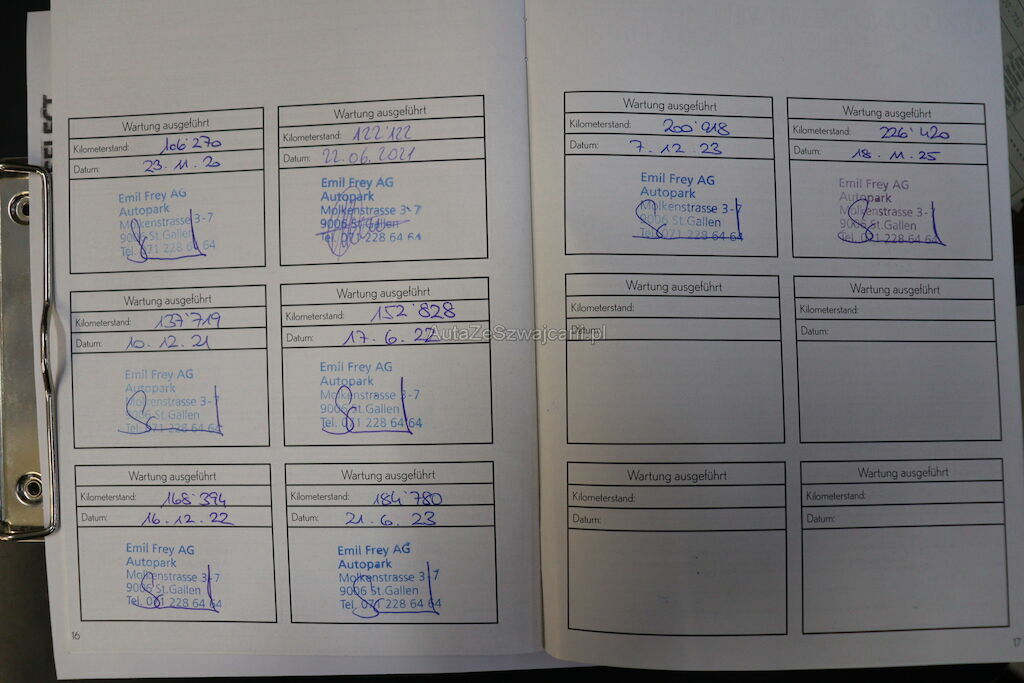 Wartung ausgeführt
Kilometerstand: 106'270
Datum: 23.11.20
Emil Frey AG
Autopark
Molkenstrasse 3-7
9006 St.Gallen
Tel. 071 228 64 64
Wartung ausgeführt
Kilometerstand: 122'122
Datum: 22.06.2021
Emil Frey AG
Autopark
Molkenstrasse 3-7
9006 St.Gallen
Tel. 071 228 64 64
Wartung ausgeführt
Kilometerstand: 137'719
Datum: 10.12.21
Emil Frey AG
Autopark
Molkenstrasse 3-7
9006 St.Gallen
Tel. 071 228 64 64
Wartung ausgeführt
Kilometerstand: 152'828
Datum: 17.6.22
Emil Frey AG
Autopark
Molkenstrasse 3-7
9006 St.Gallen
Tel. 071 228 64 64
Wartung ausgeführt
Kilometerstand: 168'394
Datum: 16.12.22
Emil Frey AG
Autopark
Molkenstrasse 3-7
9006 St.Gallen
Tel. 071 228 64 64
Wartung ausgeführt
Kilometerstand: 184'780
Datum: 21.6.23
Emil Frey AG
Autopark
Molkenstrasse 3-7
9006 St.Gallen
Tel. 071 228 64 64
16
Wartung ausgeführt
Kilometerstand: 200'918
Datum: 7.12.23
Emil Frey AG
Autopark
Molkenstrasse 3-7
9006 St.Gallen
Tel. 071 228 64 64
Wartung ausgeführt
Kilometerstand: 226'420
Datum: 18.11.25
Emil Frey AG
Autopark
Molkenstrasse 3-7
9006 St.Gallen
Tel. 071 228 64 64
Wartung ausgeführt
Kilometerstand:
Datum:
Wartung ausgeführt
Kilometerstand:
Datum:
Wartung ausgeführt
Kilometerstand:
Datum:
Wartung ausgeführt
Kilometerstand:
Datum:
17
AutaZeSzwajcarii.pl